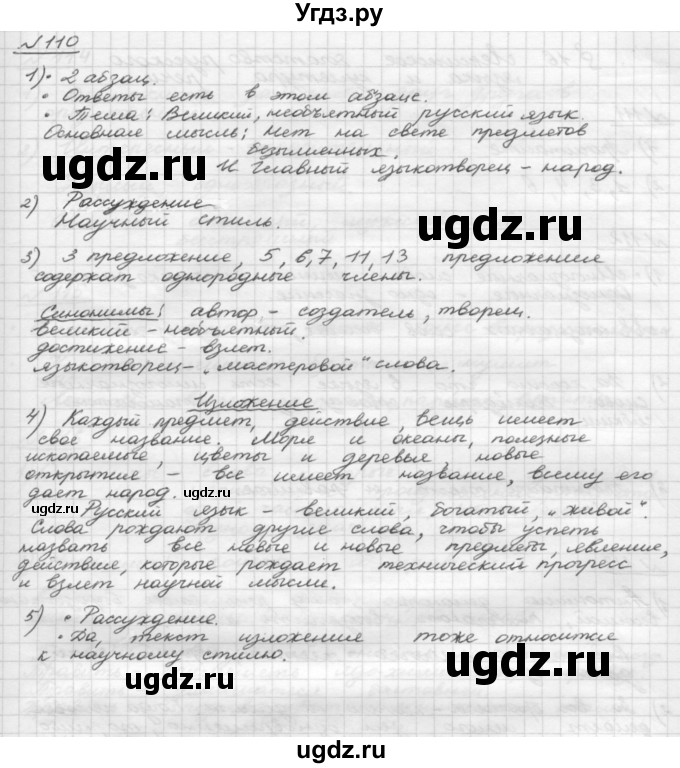 Угдз.ру
N110
1) • 2 абзац.
• Ответы есть в этом абзаце.
• Тема: Великий, необъятный русский язык.
Основная мысль: Нет на свете предметов
безымянных.
И Главный языкотворец – народ.
2) Рассуждение
Научный стиль.
3) 3 предложение, 5, 6, 7, 11, 13 предложения
содержат однородные члены.
Синонимы: автор – создатель, творец.
великий – необъятный.
достижение – взлет.
языкотворец – „мастеровой“ слова.
Изложение
4) Каждый предмет, действие, вещь имеет
свое название. Моря и океаны, полезные
ископаемые, цветы и деревья, новые
открытия – все имеет название, всему его
дает народ.
Русский язык – великий, богатый, „живой“.
Слова рождают другие слова, чтобы успеть
назвать все новые и новые предметы, явления,
действия, которые рождает технический прогресс
и взлет научной мысли.
5) • Рассуждение.
• Да, текст изложения тоже относится
к научному стилю.
ugdz.ru
ugdz.ru
ugdz.ru
ugdz.ru
ugdz.ru
ugdz.ru
ugdz.ru
ugdz.ru
ugdz.ru
ugdz.ru